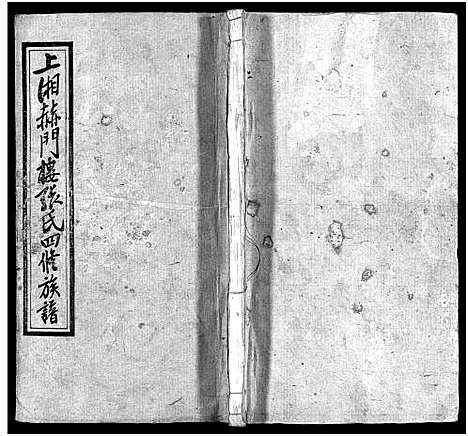 上湘赫門樓張氏四修族譜